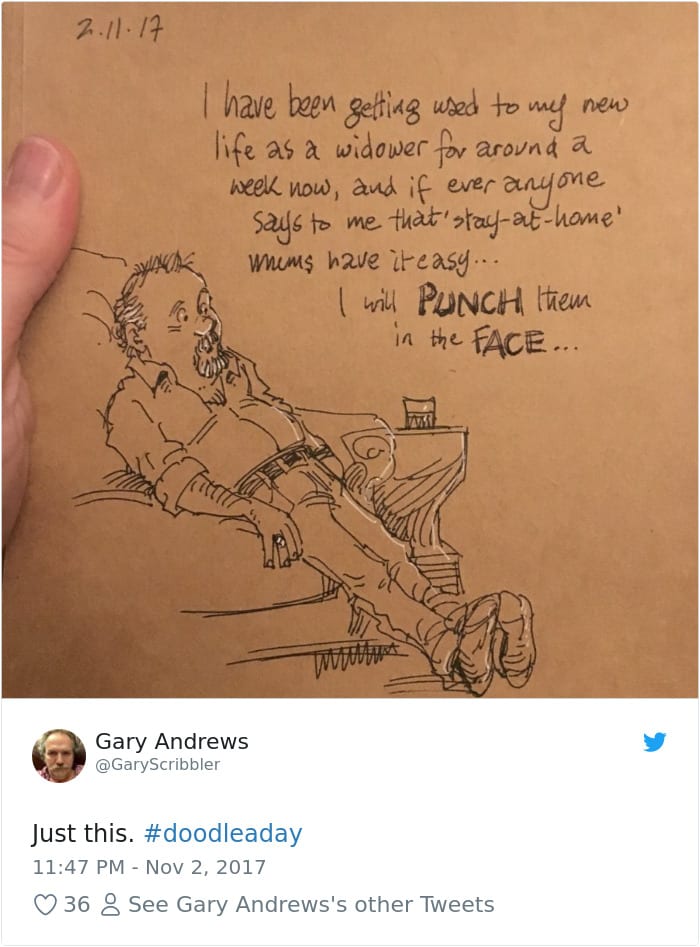 2.11.17
I have been getting used to my new
life as a widower for around a
week now, and if ever anyone
says to me that 'stay-at-home'
mums have it easy...
I will PUNCH them
in the FACE...
Gary Andrews
@GaryScribbler
Just this. #doodleaday
11:47 PM - Nov 2, 2017
36 See Gary Andrews's other Tweets